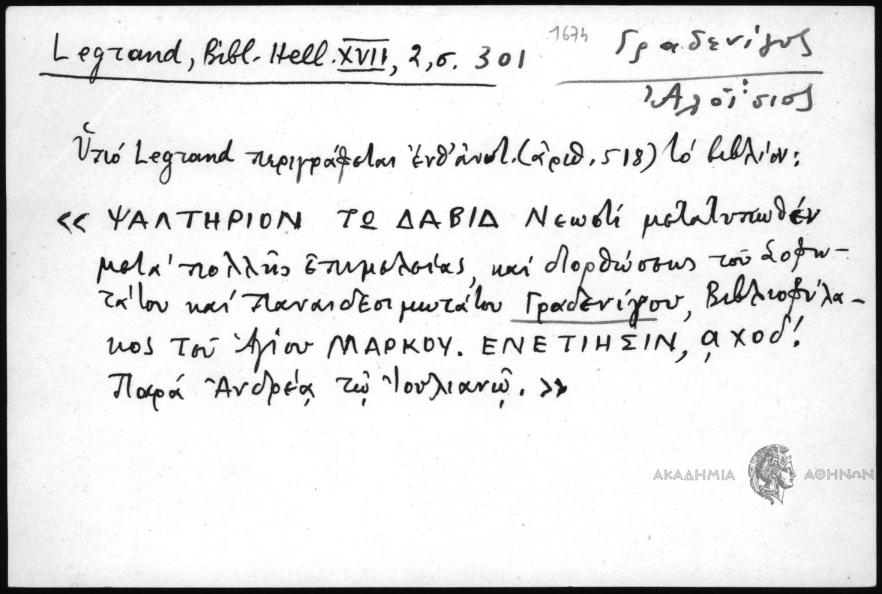 Legrand, Bibl. Hell. XVII, 2, σ. 301
1674
Γραδενίγος
Ἀλοΐσιος
Ὑπό Legrand περιγράφεται ἐνθ' ἀνωτ. (ἀριθ. 518) τό βιβλίον:
« ΨΑΛΤΗΡΙΟΝ ΤΩ ΔΑΒΙΔ Νεωστί μετατυπωθέν
μετά πολλῆς ἐπιμελείας, καί διορθώσεως τοῦ Σοφω-
τάτου καί Παναιδεσιμωτάτου Γραδενίγου, Βιβλιοφύλα-
κος τοῦ Ἁγίου ΜΑΡΚΟΥ. ΕΝΕΤΙΗΣΙΝ, αχοδ'.
Παρά Ἀνδρέᾳ τῷ Ἰουλιανῷ. »
ΑΚΑΔΗΜΙΑ ΑΘΗΝΩΝ